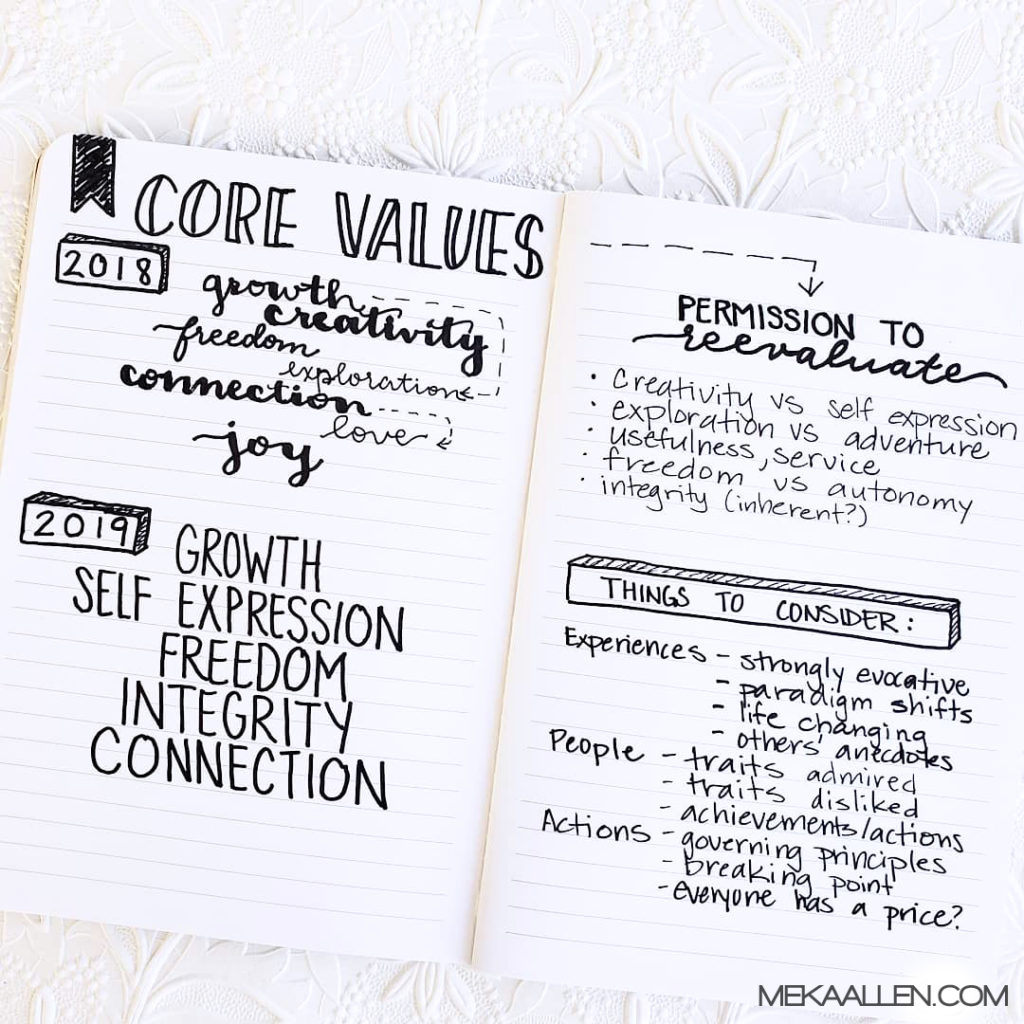 CORE VALUES
2018
growth
creativity
freedom
exploration
connection
love
joy
2019
GROWTH
SELF EXPRESSION
FREEDOM
INTEGRITY
CONNECTION
PERMISSION TO
reevaluate
• Creativity vs self expression
• exploration vs adventure
• usefulness, service
• freedom vs autonomy
• integrity (inherent?)
THINGS TO CONSIDER:
Experiences - strongly evocative
- paradigm shifts
- life changing
- others' anecdotes
People - traits admired
- traits disliked
- achievements/actions
Actions - governing principles
- breaking point
- everyone has a price?
MEKAALLEN.COM